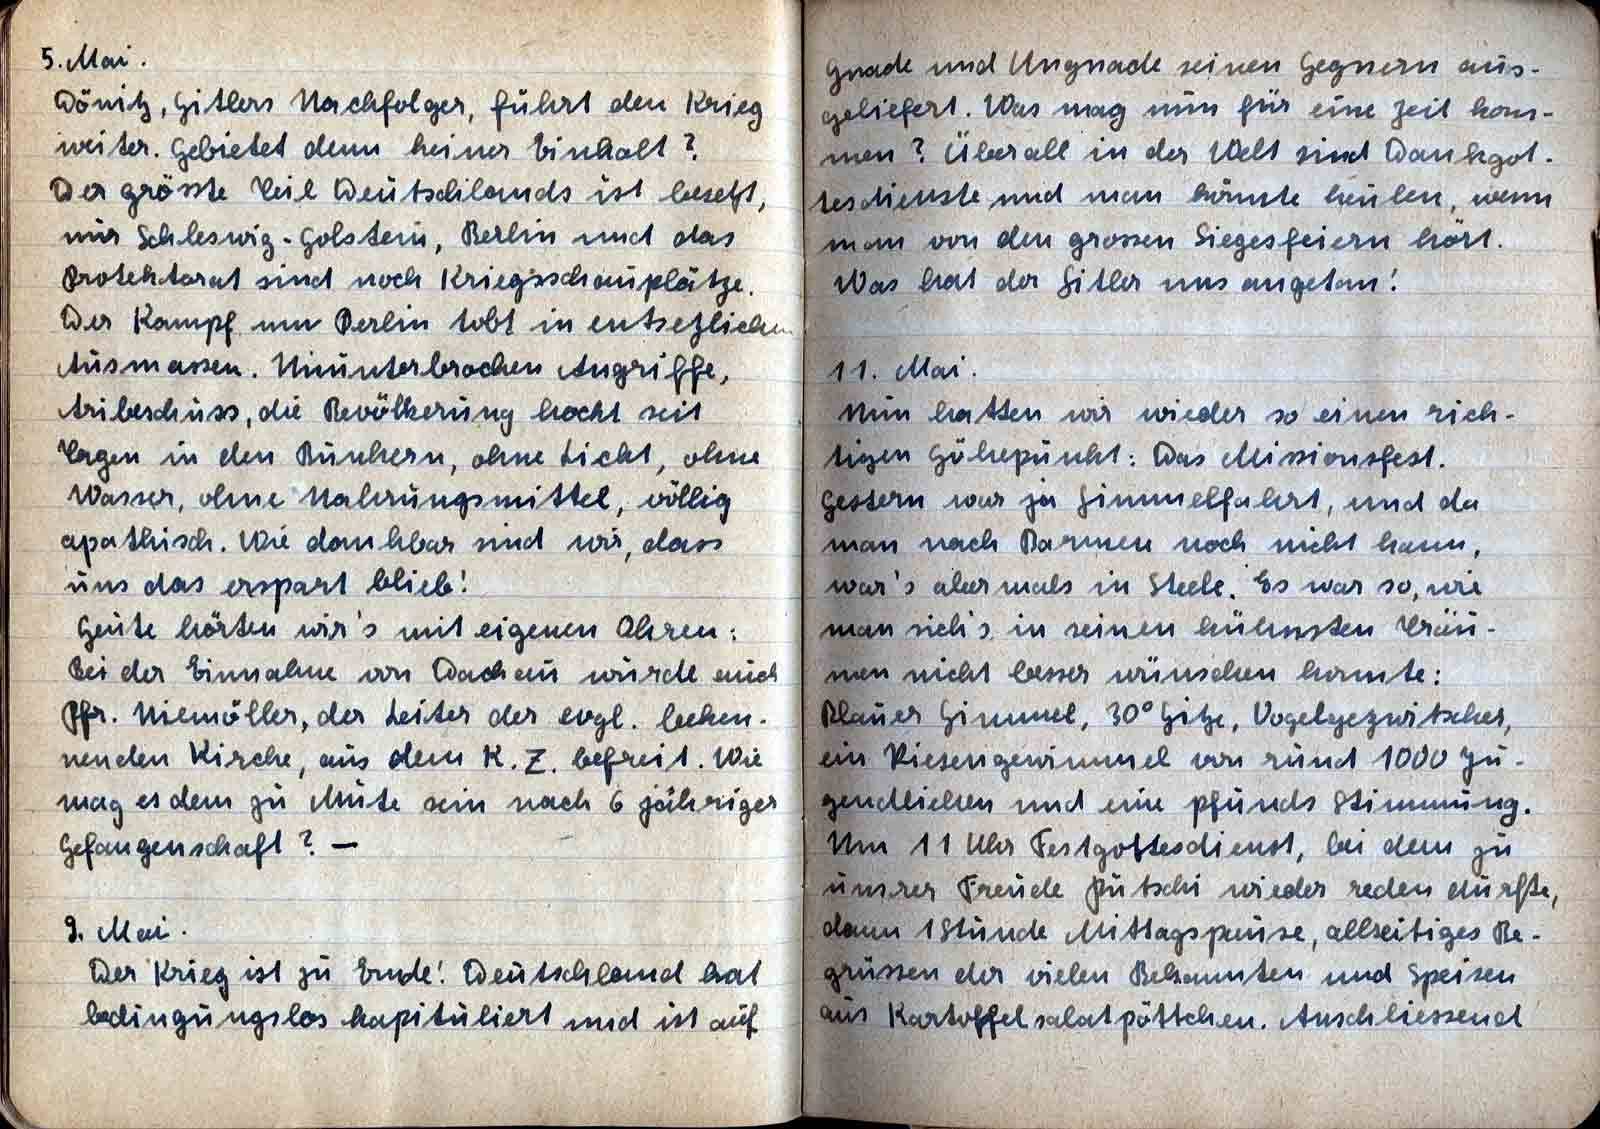 5. Mai.
Dönitz, Hitlers Nachfolger, führt den Krieg
weiter. Gebietet denn keiner Einhalt?
Der grösste Teil Deutschlands ist besetzt,
nur Schleswig-Holstein, Berlin und das
Protektorat sind noch Kriegsschauplätze.
Der Kampf um Berlin tobt in entsetzlichen
Ausmassen. Ununterbrochen Angriffe,
Aribeschuss, die Bevölkerung hockt seit
Tagen in den Bunkern, ohne Licht, ohne
Wasser, ohne Nahrungsmittel, völlig
apathisch. Wie dankbar sind wir, dass
uns das erspart blieb!
Heute hörten wir's mit eigenen Ohren:
Bei der Einnahme von Dachau wurde auch
Pfr. Niemöller, der Leiter der evgl. beken-
nenden Kirche, aus dem K.Z. befreit. Wie
mag es dem zu Mute sein nach 6 jähriger
Gefangenschaft? —
9. Mai.
Der Krieg ist zu Ende! Deutschland hat
bedingungslos kapituliert und ist auf
Gnade und Ungnade seinen Gegnern aus-
geliefert. Was mag nun für eine Zeit kom-
men? Überall in der Welt sind Dankgot-
tesdienste und man könnte heulen, wenn
man von den grossen Siegesfeiern hört.
Was hat der Hitler uns angetan!
11. Mai.
Nun hatten wir wieder so einen rich-
tigen Höhepunkt: Das Missionsfest.
Gestern war ja Himmelfahrt, und da
man nach Barmen noch nicht kann,
war's abermals in Steele. Es war so, wie
man sich's in seinen kühnsten Träu-
men nicht besser wünschen konnte:
Blauer Himmel, 30° Hitze, Vogelgezwitscher,
ein Riesengewimmel von rund 1000 Ju-
gendlichen und eine pfunds Stimmung.
Um 11 Uhr Festgottesdienst, bei dem zu
unsrer Freude Putschi wieder reden durfte,
dann 1 Stunde Mittagspause, allseitiges Be-
grüssen der vielen Bekannten und Speisen
aus Kartoffelsalatpöttchen. Anschliessend